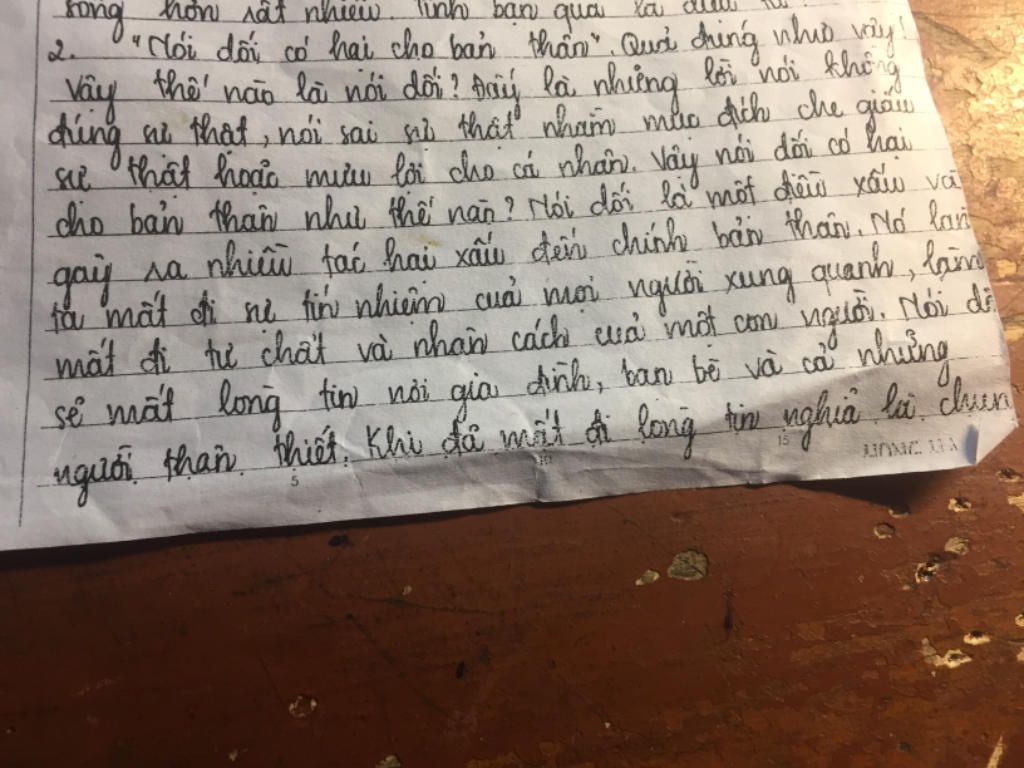 hơn rất nhiều. Tình bạn quả là
2. "Nói dối có hại cho bản thân". Quả đúng như vậy!
Vậy thế nào là nói dối? Đấy là những lời nói không
đúng sự thật, nói sai sự thật nhằm mục đích che giấu
sự thật hoặc mưu lợi cho cá nhân. Vậy nói dối có hại
cho bản thân như thế nào? Nói dối là một điều xấu và
gây ra nhiều tác hại xấu đến chính bản thân. Nó làm
ta mất đi sự tín nhiệm cuả mọi người xung quanh, làm
mất đi tư chất và nhân cách cuả một con người. Nói dố
sẽ mất lòng tin nơi gia đình, bạn bè và cả những
người thân thiết. Khi đã mất đi lòng tin nghĩa là chún
5 10 15